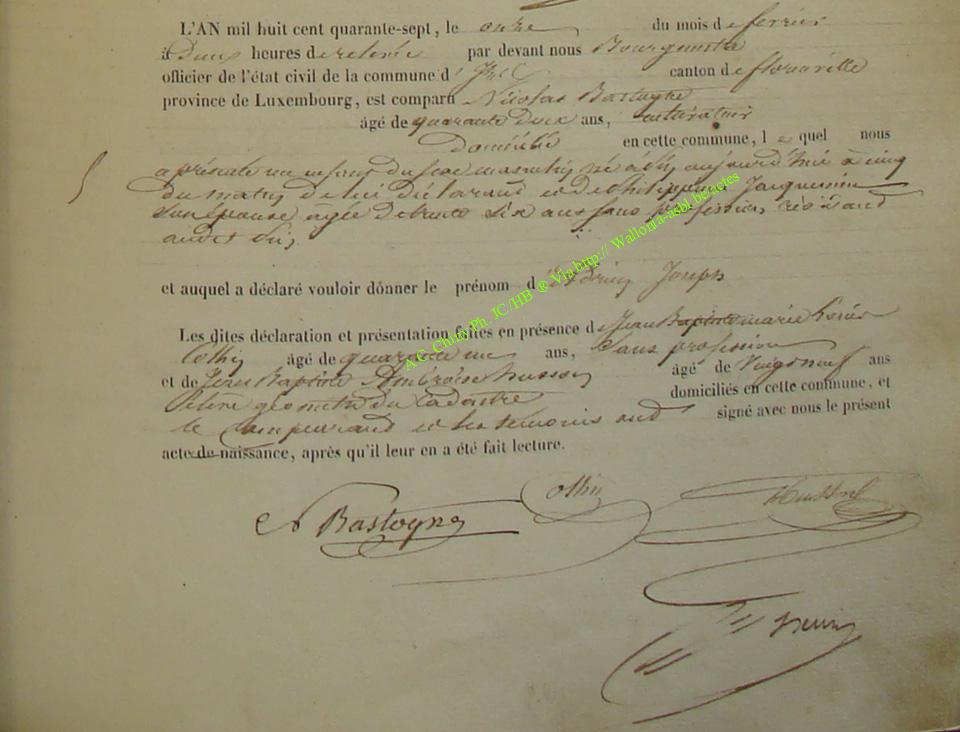 L'AN mil huit cent quarante-sept, le onze du mois de fevrier
à Deux heures de relevée par devant nous Bourgmestre
officier de l'état civil de la commune d' canton de florenville
province de Luxembourg, est comparu Nicolas Bastogne
âgé de quarante deux ans, cultivateur
Domicilié en cette commune, l e quel nous
a présenté un enfant du sexe masculin né à aujourd'hui à cinq
du matin de lui déclarant et de philippine Jacquemin
son épouse agée de trente six ans sans profession, résidant
audit
et auquel a déclaré vouloir dónner le prénom d Joseph
Les dites déclaration et présentation faites en présence de Jean Baptiste marie
Collin âgé de quarante un ans, Sans profession
et de Jean Baptiste Ambroise husson âgé de Vingt neuf ans
géomètre du Cadastre domiciliés en cette commune, et
le Comparant et les temoins ont signé avec nous le présent
acte de naissance, après qu'il leur en a été fait lecture.
N Bastogne Collin Husson
A.C. Chiny Ph. JC /HB @ Via http:// Wallonia-asbl.be/actes